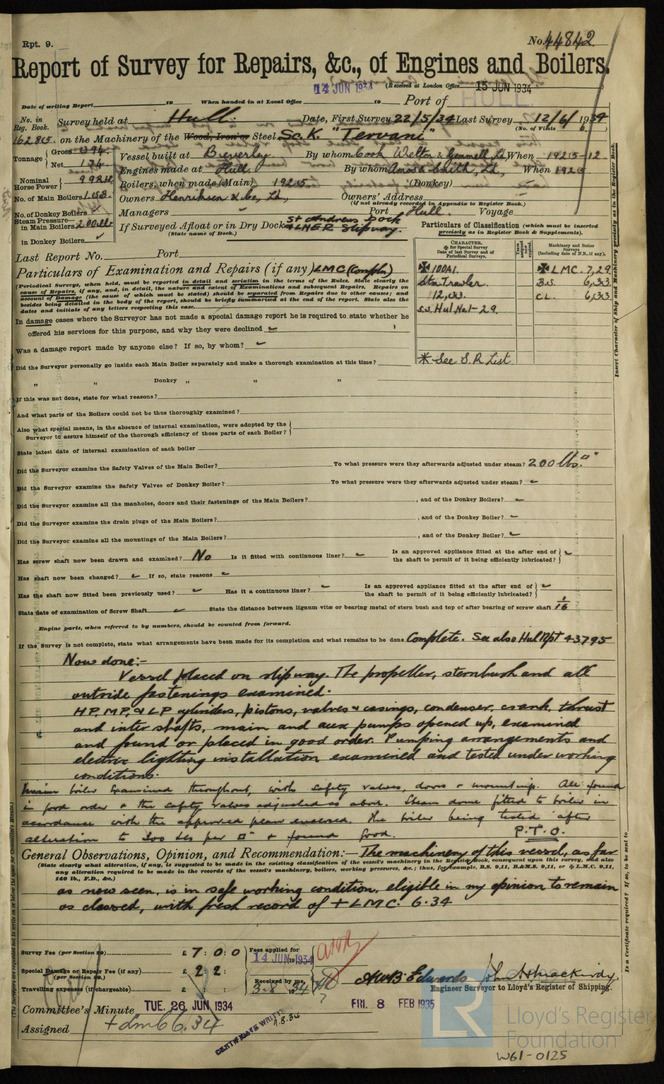 Rpt. 9.
No. 44842
Report of Survey for Repairs, &c., of Engines and Boilers.
14 JUN 1934
(Received at London Office 15 JUN 1934
Date of writing Report to When handed in at Local Office to Port of HULL
No. in Reg. Book. Survey held at Hull. Date, First Survey 22/5/34 Last Survey 12/6/1934
(No. of Visits 6)
on the Machinery of the Wood, Iron or Steel Sc. K "Tervani"
Tonnage Gross 
Net 174
Vessel built at Beverley By whom Cook Welton & Gemmell Ld When 1925-12
Nominal Horse Power 99 RH
Engines made at Hull By whom Amos & Smith, Ld, When 1925
No. of Main Boilers 1 S.B.
Boilers, when made (Main) 1925 (Donkey)
Owners Henriksen & Co, Ld, Owners' Address
(if not already recorded in Appendix to Register Book.)
No. of Donkey Boilers
Managers Port Hull. Voyage
Steam Pressure in Main Boilers 200 lb
in Donkey Boilers
If Surveyed Afloat or in Dry Dock St Andrews Dock & LNER Slipway.
(State name of Dock.)
Particulars of Classification (which must be inserted precisely as in Register Book & Supplements).
Last Report No. Port
Particulars of Examination and Repairs (if any) LMC (Compln)
CHARACTER.
for Special Survey
Date of last Survey and of Periodical Surveys.
Machinery and Boiler Surveys
(including date of N.B., if any).
✠ 100A1.
Stm Trawler.
12,33.
S.S. Hul No1-29.
✠ LMC. 7,29
B.S. 6,33
CL. 6,33
* See S.R. List
In damage cases where the Surveyor has not made a special damage report he is required to state whether he
offered his services for this purpose, and why they were declined
Was a damage report made by anyone else? If so, by whom?
Did the Surveyor personally go inside each Main Boiler separately and make a thorough examination at this time?
" " Donkey " " "
If this was not done, state for what reasons?
And what parts of the Boilers could not be thoroughly examined?
Also what special means, in the absence of internal examination, were adopted by the
Surveyor to assure himself of the thorough efficiency of those parts of each Boiler?
State latest date of internal examination of each boiler
Did the Surveyor examine the Safety Valves of the Main Boiler? To what pressure were they afterwards adjusted under steam? 200 lbs. □"
Did the Surveyor examine the Safety Valves of Donkey Boiler? To what pressure were they afterwards adjusted under steam?
Did the Surveyor examine all the manholes, doors and their fastenings of the Main Boilers? , and of the Donkey Boilers?
Did the Surveyor examine the drain plugs of the Main Boilers? , and of the Donkey Boilers?
Did the Surveyor examine all the mountings of the Main Boilers? , and of the Donkey Boilers?
Has screw shaft now been drawn and examined? No Is it fitted with continuous liner? Is an approved appliance fitted at the after end of the shaft to permit of it being efficiently lubricated?
Has shaft now been changed? If so, state reasons
Has the shaft now fitted been previously used? Has it a continuous liner? Is an approved appliance fitted at the after end of the shaft to permit of it being efficiently lubricated?
State date of examination of Screw Shaft State the distance between lignum vitæ or bearing metal of stern bush and top of after bearing of screw shaft 1/16
Engine parts, when referred to by numbers, should be counted from forward.
If the Survey is not complete, state what arrangements have been made for its completion and what remains to be done Complete. See also Hul Rpt 43795
Now done:-
Vessel placed on slipway. The propeller, sternbush and all
outside fastenings examined.
H.P, M.P, & L.P cylinders, pistons, valves & casings, condenser, crank, thrust
and inter shafts, main and aux pumps opened up, examined
and found or placed in good order. Pumping arrangements and
electric lighting installation examined and tested under working
conditions.
Main boiler examined throughout, with safety valves, doors & mountings. All found
in good order & the safety valves adjusted as above. Steam dome fitted to boiler in
accordance with the approved plan enclosed. The boiler being tested after
alteration to 300 lbs per □" & found good. P.T.O.
General Observations, Opinion, and Recommendation:- The machinery of this vessel, as far
as now seen, is in safe working condition, eligible in my opinion to remain
as classed, with fresh record of + LMC. 6.34
Survey Fee (per Section 29) £ 7 : 0 : 0
Fees applied for 14 JUN 1934
Special Damage or Repair Fee (if any) (per Section 29) £ 2 : 2 :
Received by me, 3-8-34
Travelling expenses (if chargeable) £ : :
AWB Edwards
Engineer Surveyor to Lloyd's Register of Shipping.
Committee's Minute TUE. 26 JUN 1934
FRI. 8 FEB 1935
Assigned + LMC 6.34
CERTIFICATE WRITTEN 7.8.34
LR
Lloyd's Register
Foundation
W61-0125